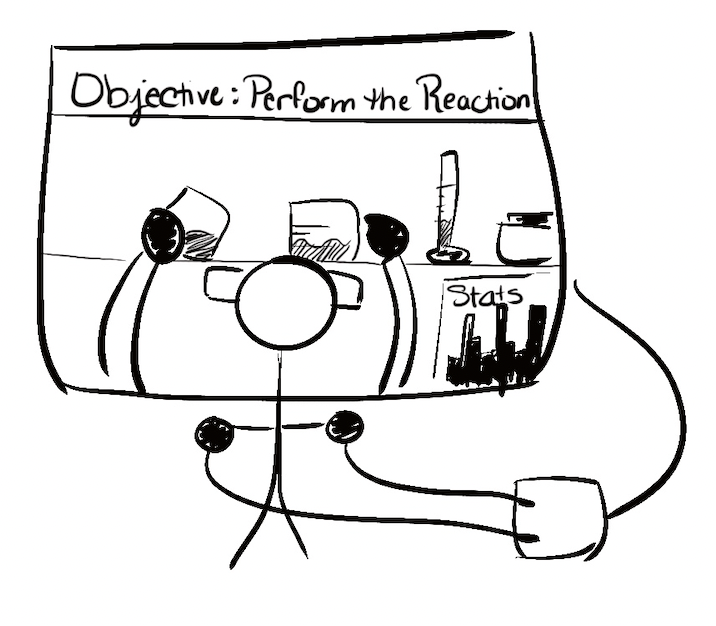 Objective: Perform the Reaction
Stats